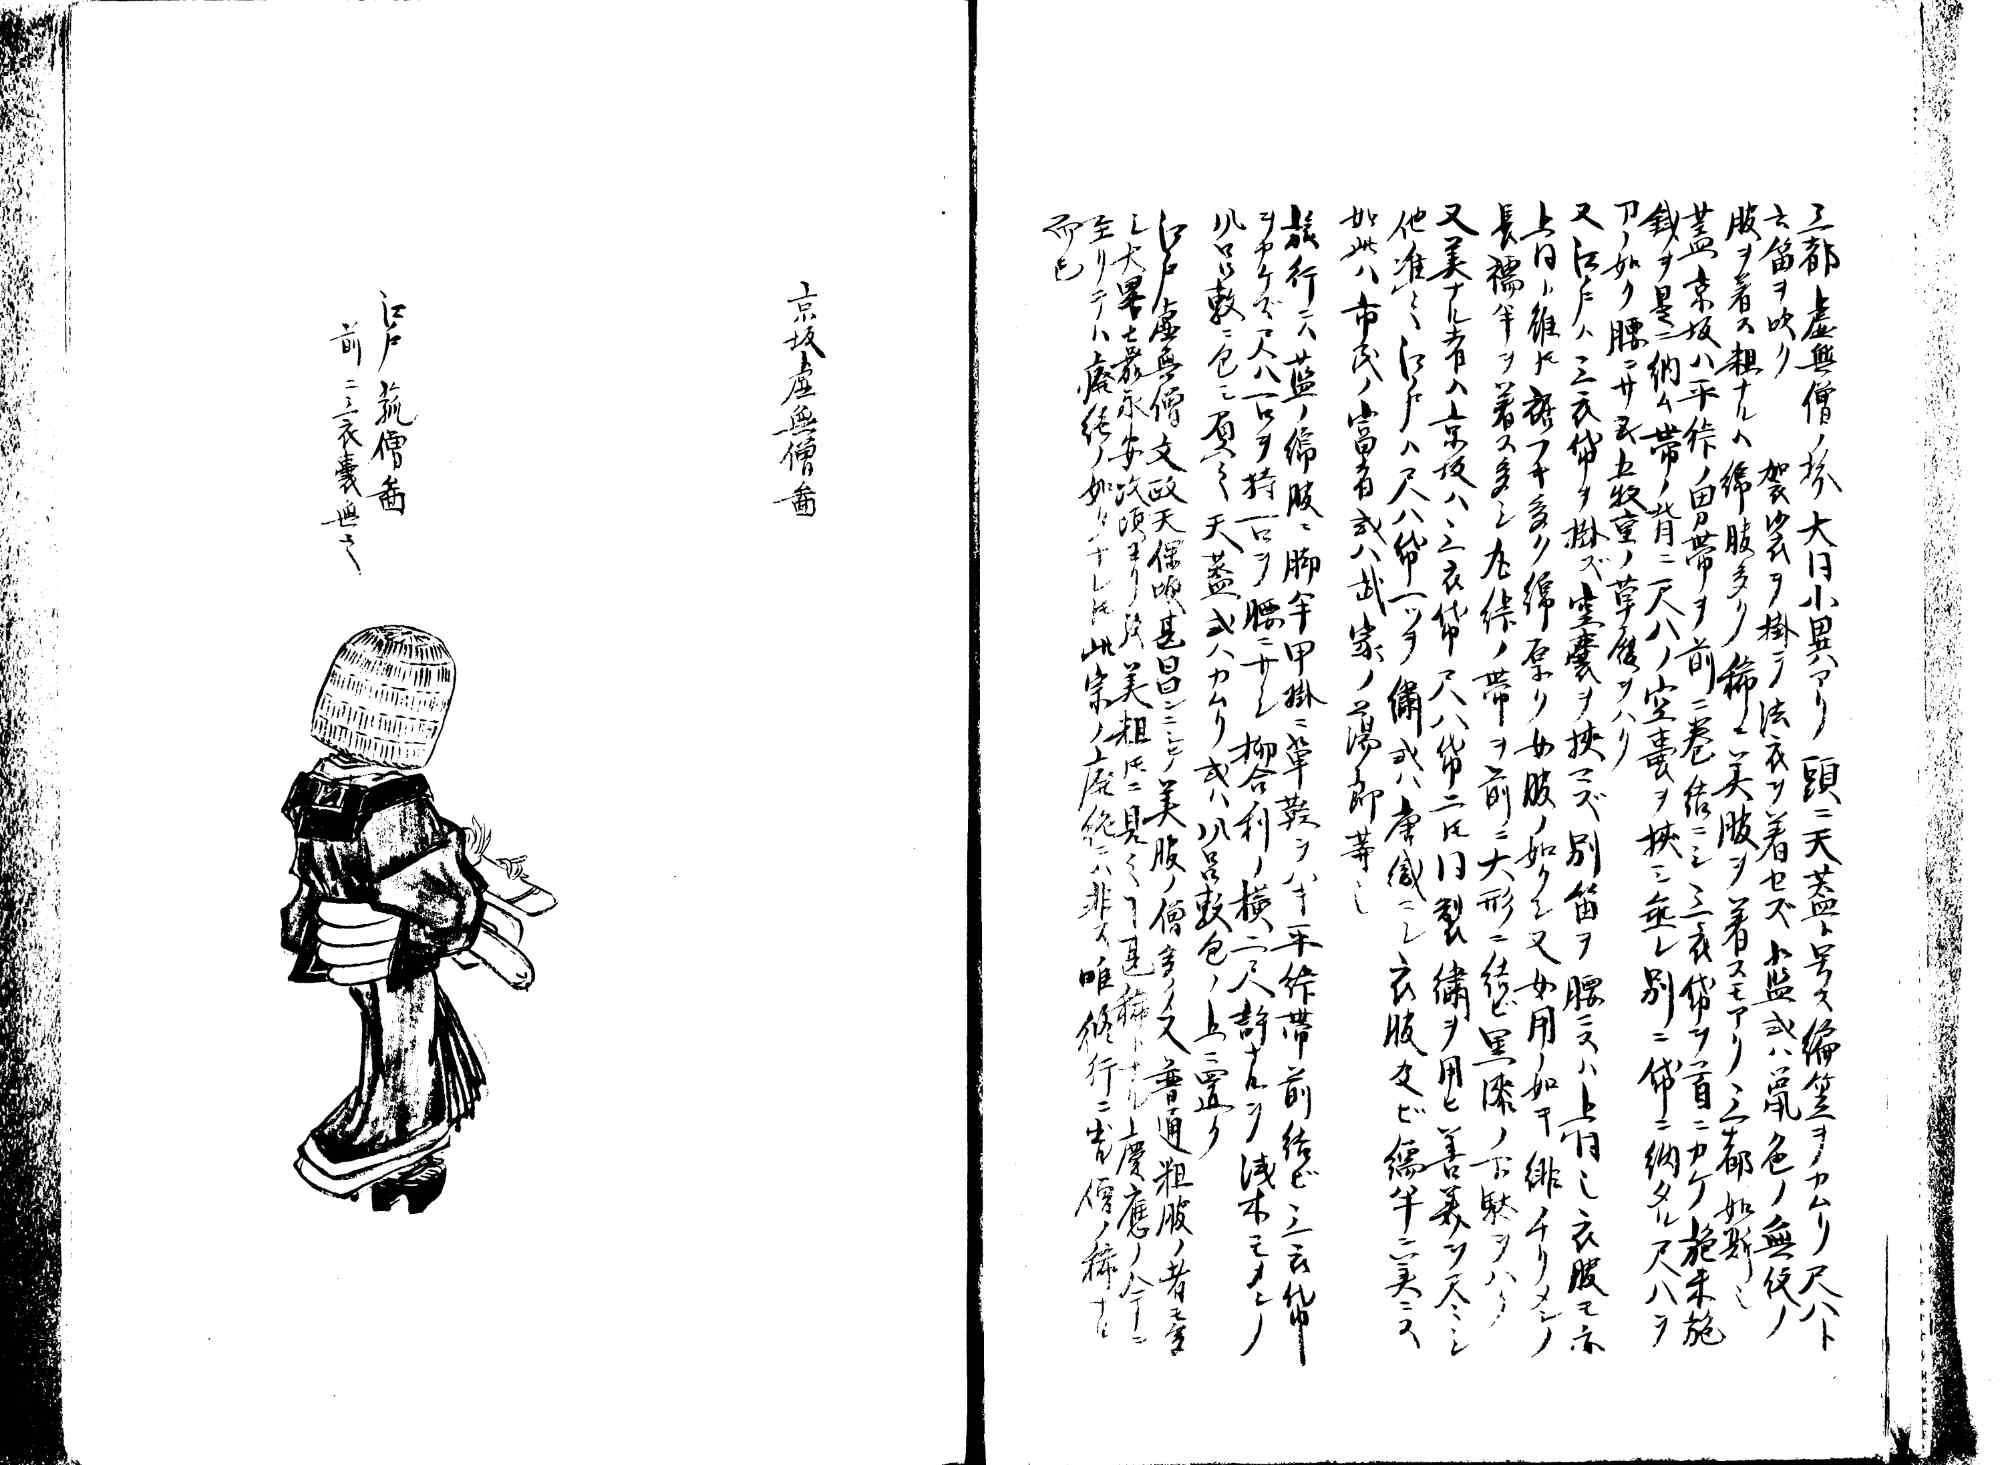 三都虚無僧ノ扮大同小異アリ頭ニ天蓋ト号ス編笠ヲカムリ尺八ト
云笛ヲ吹ク 袈裟ヲ掛テ法衣ヲ着セズ 藍或ハ鼠色ノ無紋ノ
服ヲ着ス粗ナルハ綿服多ク稀ニ美服ヲ着スモアリ三都如斯シ
蓋京坂ハ平絎ノ 帯ヲ前ニ巻結ニシ三衣袋ヲ首ニカケ施米施
銭ヲ是ニ納ム帯ノ背ニ尺八ノ空嚢ヲ挟ミ垂レ別ニ袋ニ納タル尺八ヲ
刀ノ如ク腰ニサ 五枚重ノ草履ヲハク
又江戸ハ三衣袋ヲ掛ズ空嚢ヲ挟マズ別笛ヲ腰ニスハ上同シ衣服モ亦
上同ト雖トモ裾フキ多ク綿厚ク女服ノ如クシ又女用ノ如キ緋チリメンノ
長襦半ヲ着ス多シ丸絎ノ帯ヲ前ニ大形ニ結ビ黒漆ノ下駄ヲハク
又美ナル者ハ京坂ハ三衣袋尺八袋二トモ同製繍ヲ用ヒ善美ヲ尽ミシ
他准之江戸ハ尺八袋一ツヲ繍或ハ唐織ニシ衣服及ビ襦半ニ美ニス
如此ハ市民ノ富者或ハ武家ノ蕩郎等シ
旅行ニハ藍ノ綿服ニ脚半甲掛ニ草鞋ヲハキ平絎帯前結ビ三衣袋
ヲカケズ尺八一口ヲ持一口ヲ腰ニサシ柳合利ノ横二尺許ナルヲ浅木モメンノ
風呂敷ニ包ミ負之天蓋或ハカムリ或ハ風呂敷包ノ上ニ置ク
江戸虚無僧文政天保 甚昌ンニシテ美服ノ僧多ク又普通粗服ノ者モ多
シ大畧 嘉永安政頃ヨリ後美粗トモニ見之 甚稀トナル慶應ノ今ニ
至リテハ廃絶ノ如クナレトモ此宗ノ廃絶ニハ非ス唯修行ニ出ル僧ノ稀ナル
而已
京坂虚無僧畵
江戸 僧畵
前ニ三衣嚢無之